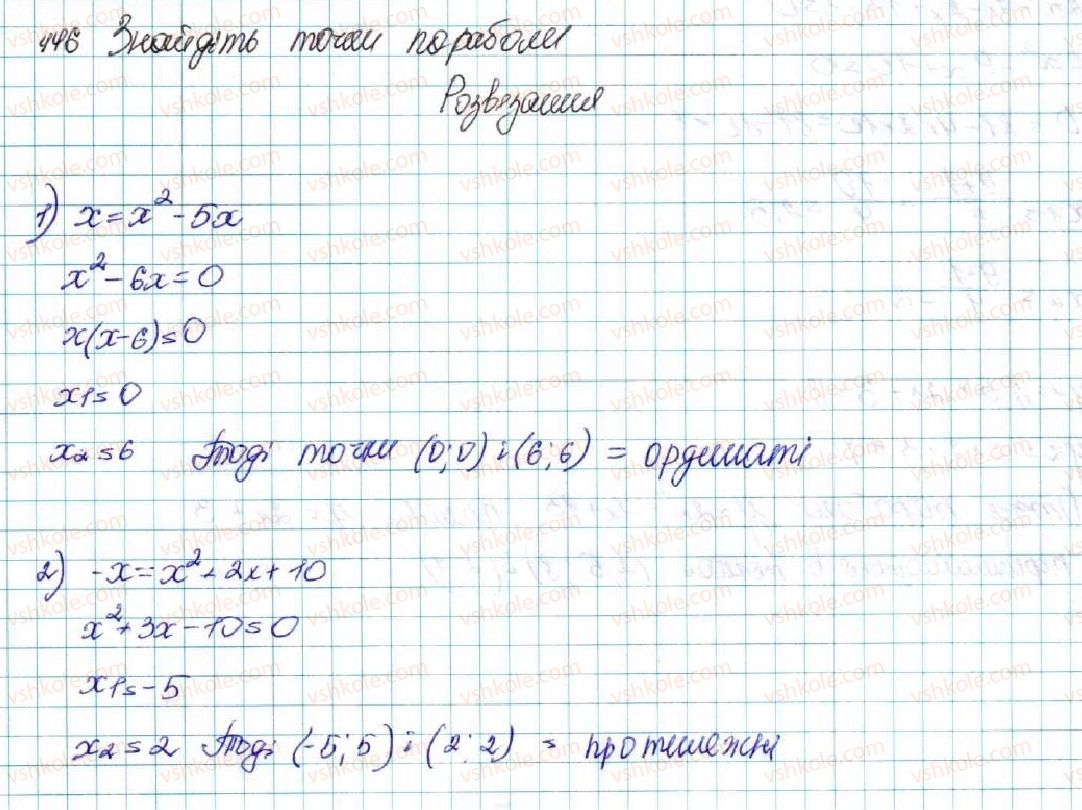 446 Знайдіть точки параболи
Розвязання
1) x = x² - 5x
x² - 6x = 0
x(x-6) = 0
x1 = 0
x2 = 6 Тоді точки (0;0) і (6;6) = ординаті
2) -x = x² + 2x + 10
x² + 3x - 10 = 0
x1 = -5
x2 = 2 Тоді (-5;5) і (2:2) = протилежні
vshkole.com